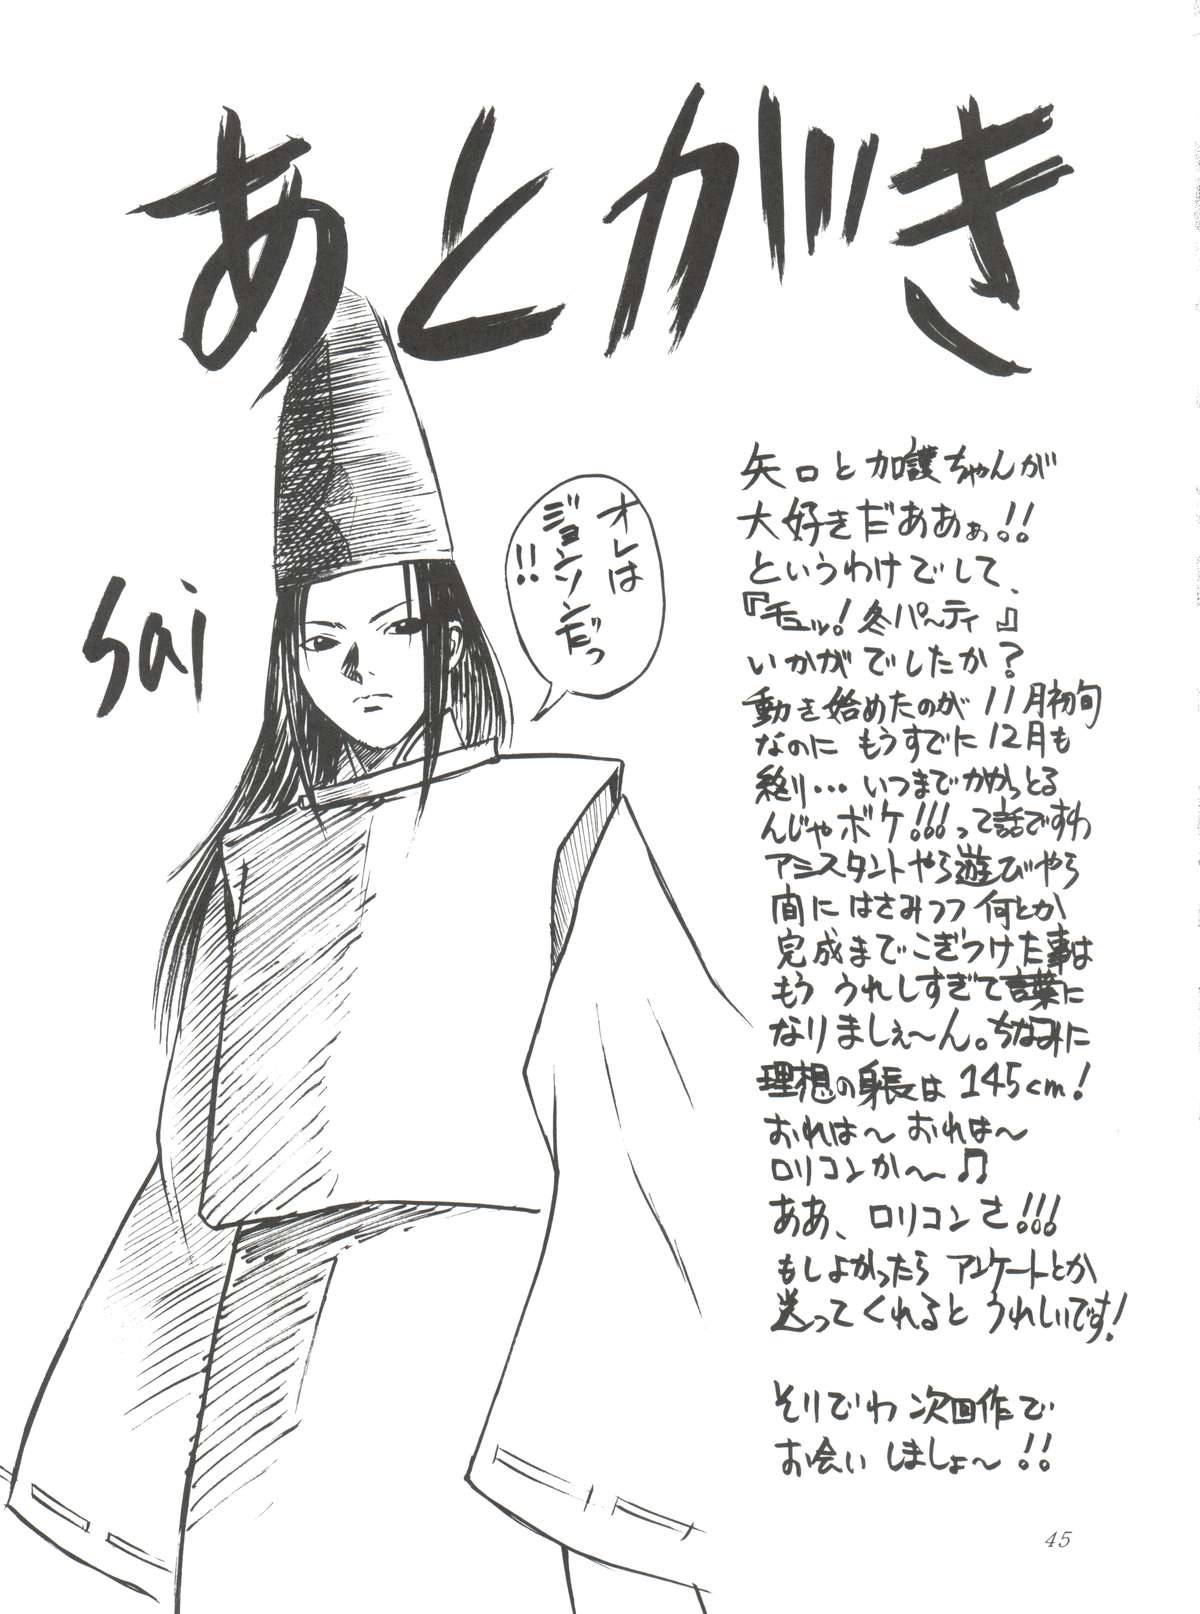 あとがき
sai
オレは
ジョンソンだっ
!!
矢口と加護ちゃんが
大好きだあぁぁ!!
というわけでして、
『チュッ!冬パ〜ティ』
いかがでしたか?
動き始めたのが11月初旬
なのにもうすでに12月も
終り…いつまでかかっとる
んじゃボケ!!!って話ですわ
アシスタントやら遊びやら
間にはさみつつ何とか
完成までこぎつけた事は
もううれしすぎて言葉に
なりましぇ〜ん。ちなみに
理想の身長は145cm!
おれは〜おれは〜
ロリコンか〜♫
ああ、ロリコンさ!!!
もしよかったらアンケートとか
送ってくれるとうれしいです!
そりでわ次回作で
お会いしましょ〜!!
45